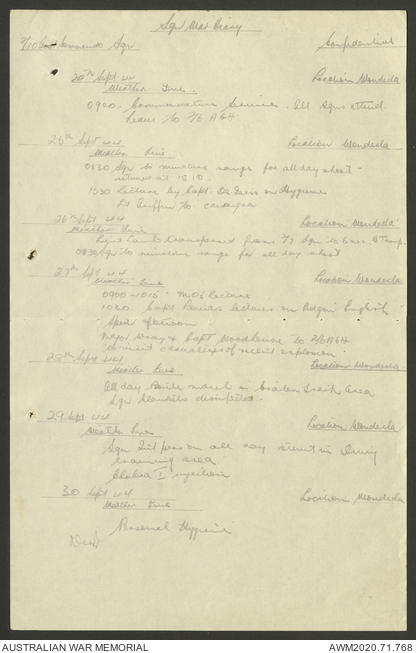 Sqn War Diary
2/10 Aust Commando Sqn Confidential
20th Sept 44 Location Wondecla
Weather Fine.
0900. Service. All Sqns attend.
Leave to 2/6 AGH
25th Sept 44 Location Wondecla
Weather Fine
0830 Sqn to miniature range for all day shoot -
returned at 1810.
1330 Lecture by Capt. on Hygiene
Lt Griffin to
26th Sept 44 Location Wondecla
Weather Fine
Lieut transferred from 2/7 Sqn to Troop.
0830 Sqn to miniature range for all day shoot
27th Sept 44 Location Wondecla
Weather Fine
0900-1015 MO's lecture
1030 Capt lectures on Pidgin English
Sports afternoon
Major Wray & Capt Woodhouse to 2/6 AGH
to visit casualties of recent explosion
28th Sept 44 Location Wondecla
Weather Fine
All day Route march in Track Area
Sqn blankets disinfected.
29 Sept 44 Location Wondecla
Weather Fine
Sqn on all day in
training area
Cholera I injection
30 Sept 44 Location Wondecla
Weather Fine
Personal Hygiene
AUSTRALIAN WAR MEMORIAL AWM2020.71.768